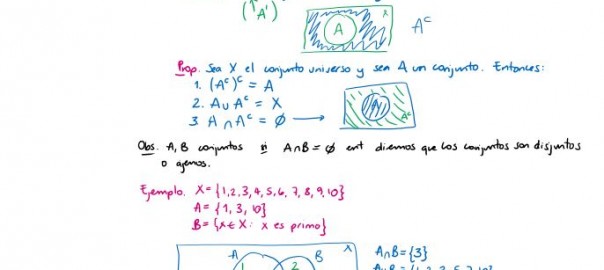 (A')
A
X
A^c
Prop. Sea X el conjunto universo y sea A un conjunto. Entonces:
1. (A^c)^c = A
2. A ∪ A^c = X
3 A ∩ A^c = ∅ →
A^c
Obs. A, B conjuntos si A∩B = ∅ ent diremos que los conjuntos son disjuntos
o ajenos.
Ejemplo. X = {1,2,3,4,5,6,7,8,9,10}
A = {1, 3, 10}
B = {x ∈ X : x es primo}
A
B
X
1
2
A∩B = {3}